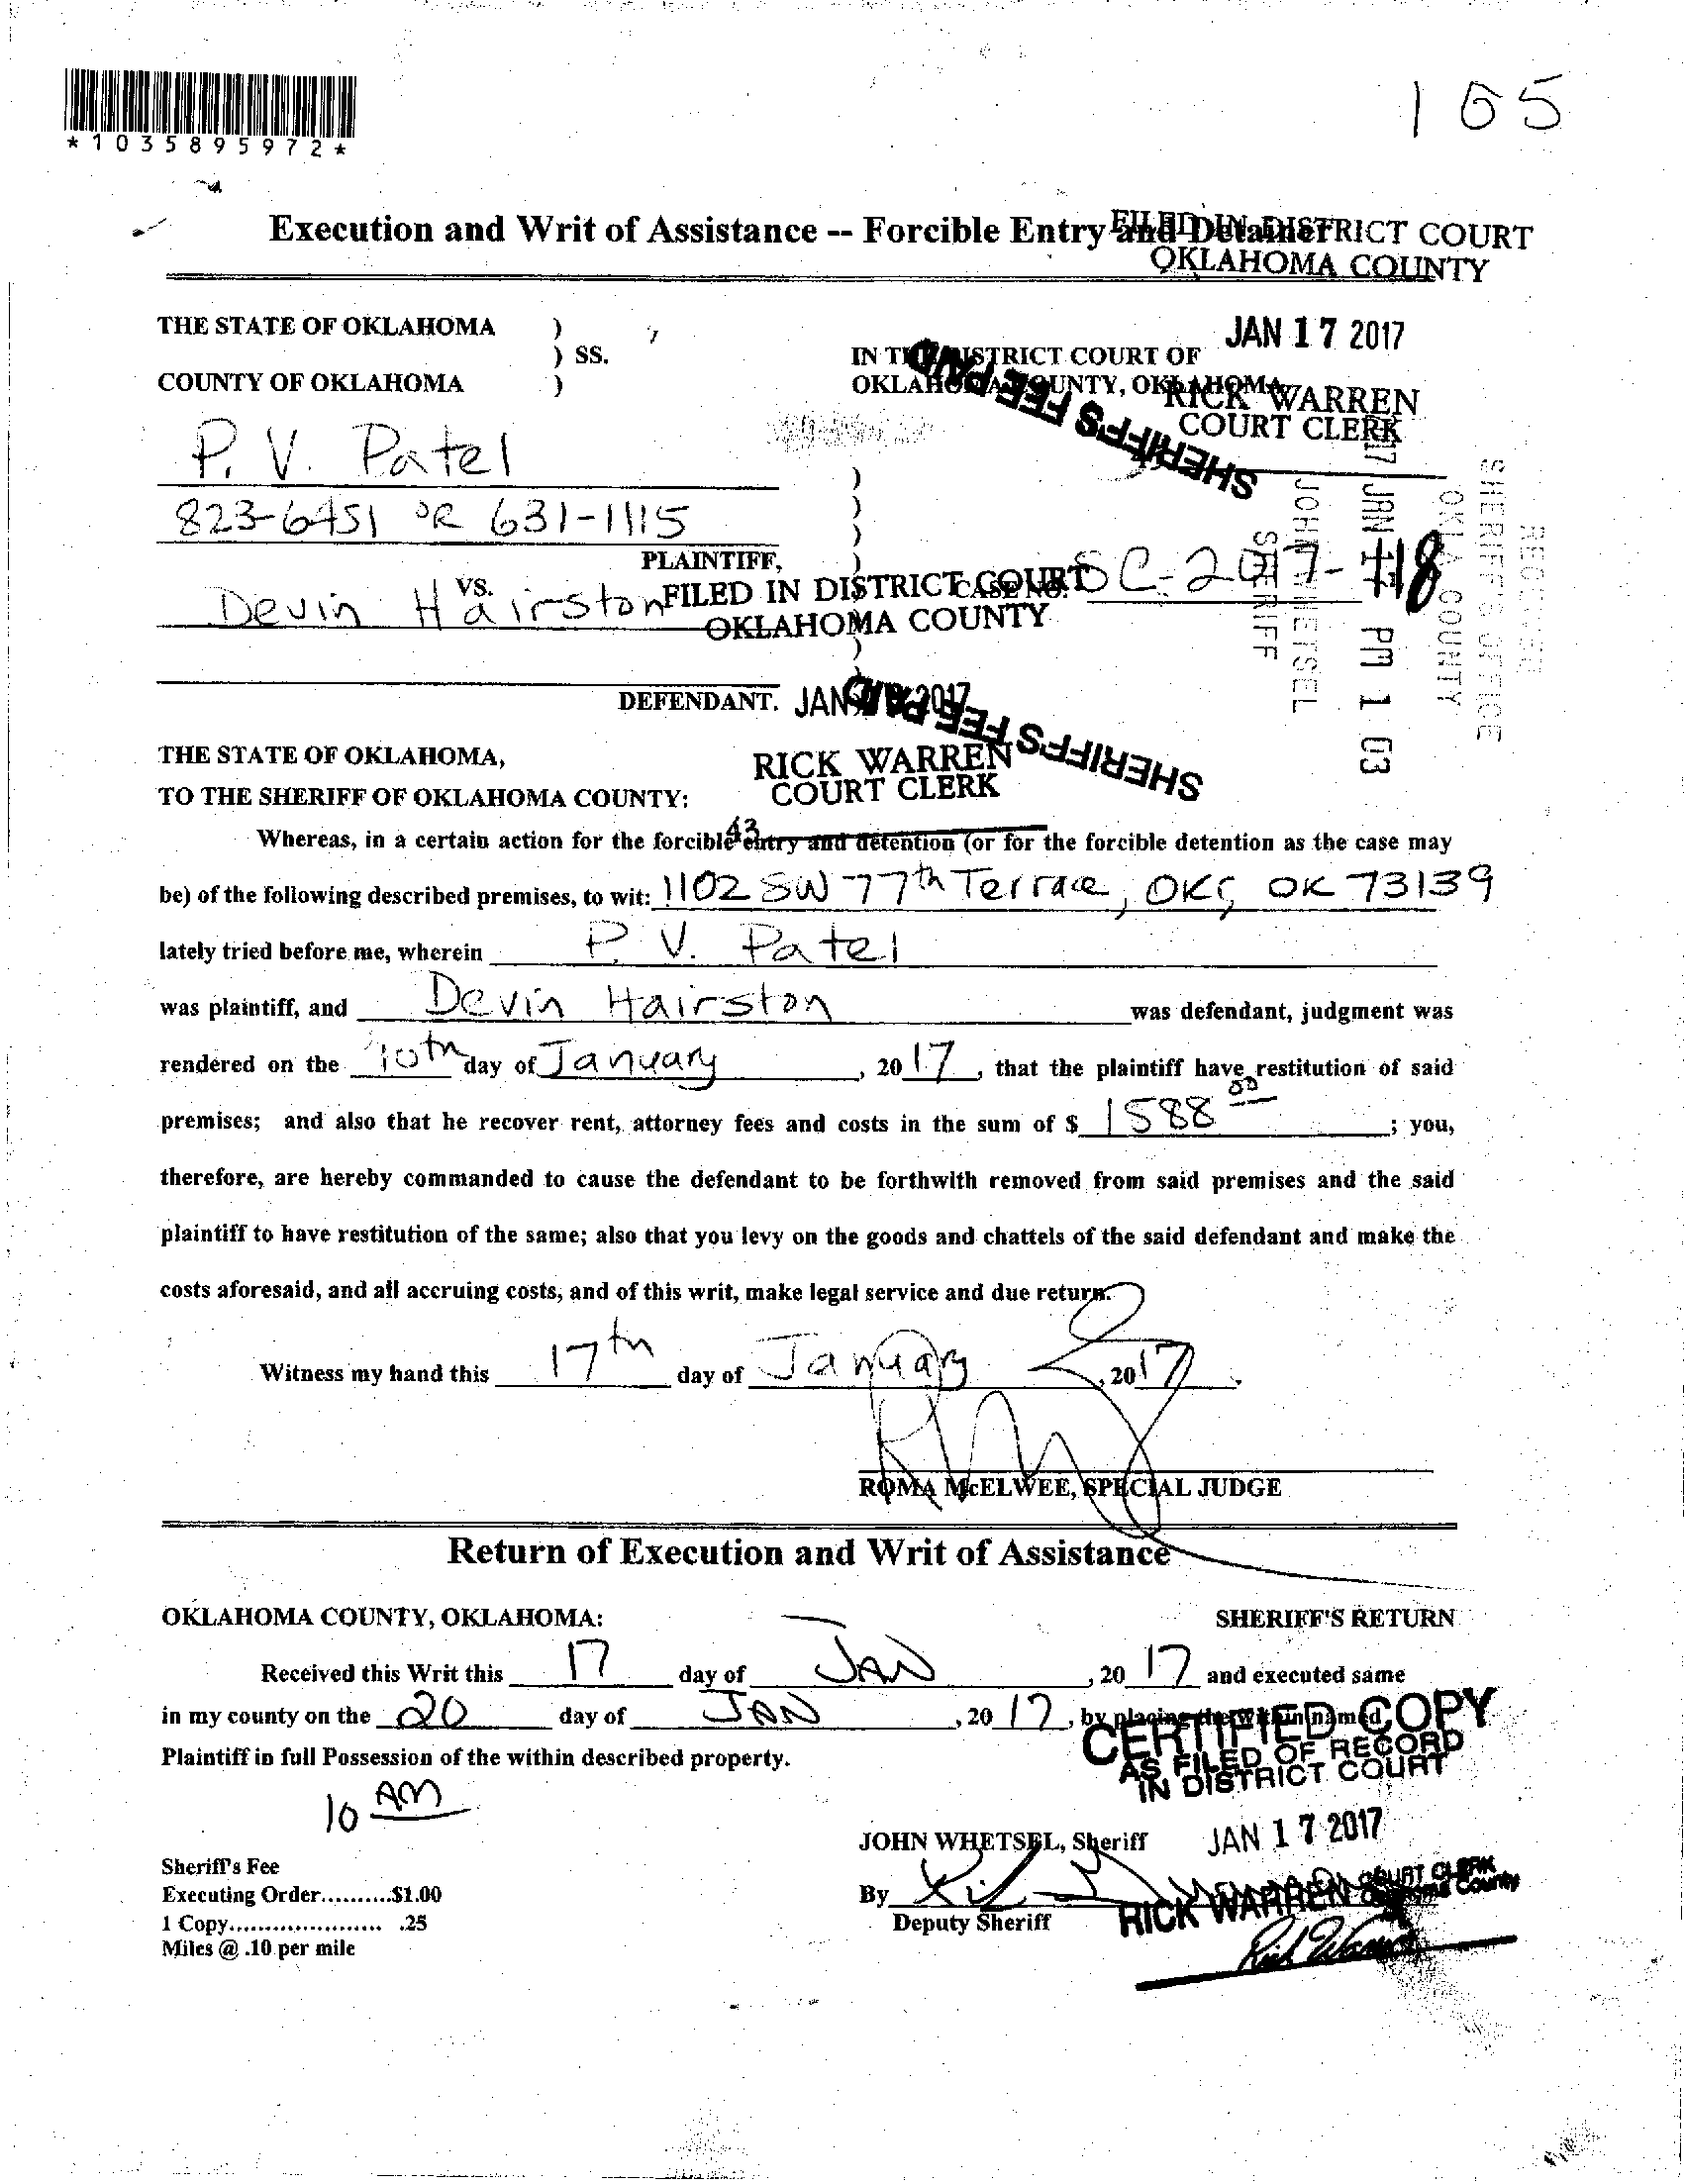 *1035895972*
165
Execution and Writ of Assistance -- Forcible Entry and Detainer
FILED IN DISTRICT COURT
OKLAHOMA COUNTY
JAN 17 2017
RICK WARREN
COURT CLERK
THE STATE OF OKLAHOMA )
) SS.
COUNTY OF OKLAHOMA )
IN THE DISTRICT COURT OF
OKLAHOMA COUNTY, OKLAHOMA
SHERIFF'S FEE PAID
P. V. Patel
823-6451 OR 631-1115
PLAINTIFF,
VS.
Devin Hairston
CASE NO. SC-2017-118
FILED IN DISTRICT COURT
OKLAHOMA COUNTY
RECEIVED
SHERIFF'S OFFICE
OKLA COUNTY
17 JAN 17 PM 1 03
JOHN WHETSEL
SHERIFF
DEFENDANT.
JAN 2017
SHERIFF'S FEE PAID
RICK WARREN
COURT CLERK
43
THE STATE OF OKLAHOMA,
TO THE SHERIFF OF OKLAHOMA COUNTY:
Whereas, in a certain action for the forcible entry and detention (or for the forcible detention as the case may
be) of the following described premises, to wit: 1102 SW 77th Terrace, OKC, OK 73139
lately tried before me, wherein P. V. Patel
was plaintiff, and Devin Hairston was defendant, judgment was
rendered on the 10th day of January, 2017, that the plaintiff have restitution of said
premises; and also that he recover rent, attorney fees and costs in the sum of $ 1588 00; you,
therefore, are hereby commanded to cause the defendant to be forthwith removed from said premises and the said
plaintiff to have restitution of the same; also that you levy on the goods and chattels of the said defendant and make the
costs aforesaid, and all accruing costs, and of this writ, make legal service and due return.
Witness my hand this 17th day of January, 2017.
ROMA McELWEE, SPECIAL JUDGE
Return of Execution and Writ of Assistance
OKLAHOMA COUNTY, OKLAHOMA: SHERIFF'S RETURN
Received this Writ this 17 day of JAN, 2017 and executed same
in my county on the 20 day of JAN, 2017, by placing the within named
Plaintiff in full Possession of the within described property.
10 AM
CERTIFIED COPY
AS FILED OF RECORD
IN DISTRICT COURT
JAN 17 2017
RICK WARREN COURT CLERK
Oklahoma County
Rick Warren
JOHN WHETSEL, Sheriff
By
Deputy Sheriff
Sheriff's Fee
Executing Order..........$1.00
1 Copy...................... .25
Miles @ .10 per mile